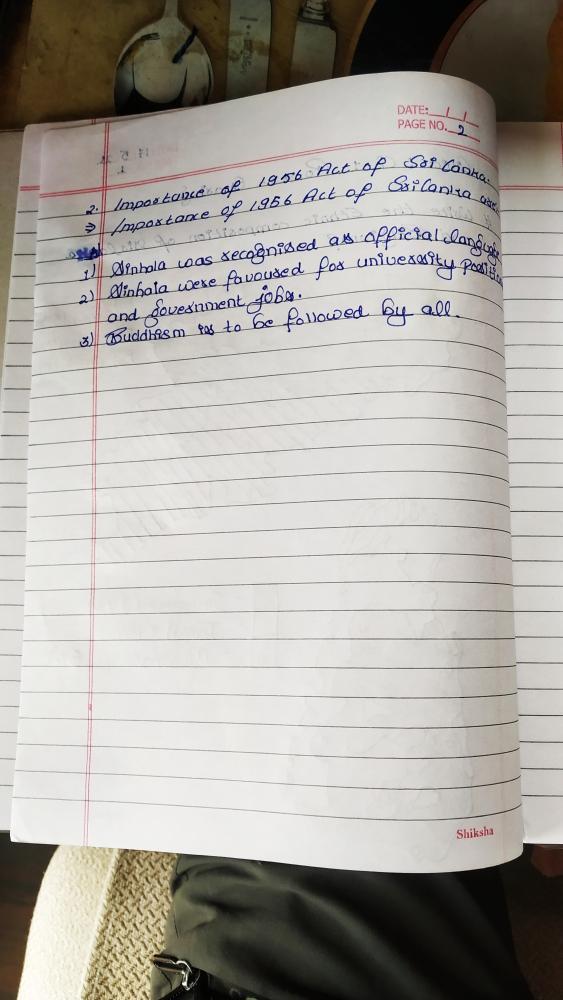 DATE: / /
PAGE NO. 2
2. Importance of 1956 Act of Sri Lanka.
⇒ Importance of 1956 Act of Sri Lanka are
1) Sinhala was recognised as official language
2) Sinhala were favoured for university position
and government jobs.
3) Buddhism is to be followed by all.
Shiksha